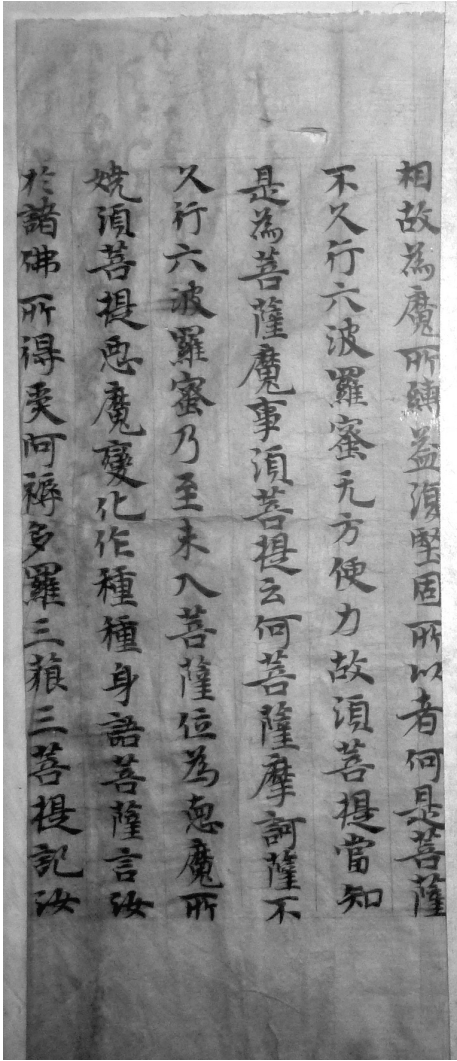 相故為魔所縛益復堅固所以者何是菩薩
不久行六波羅蜜无方便力故須菩提當知
是為菩薩魔事須菩提云何菩薩摩訶薩不
久行六波羅蜜乃至未入菩薩位為惡魔所
嬈須菩提惡魔變化作種種身語菩薩言汝
於諸佛所得受阿耨多羅三藐三菩提記汝